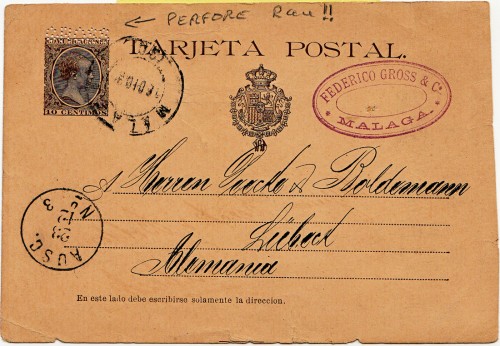 ← PERFORE Rau!!
TARJETA POSTAL.
10 CENTIMOS
MALA
FEDERICO GROSS & Cº
MALAGA.
A Herren & Boldemann
Lübeck
Alemania
AUSG. Nº 3
En este lado debe escribirse solamente la direccion.